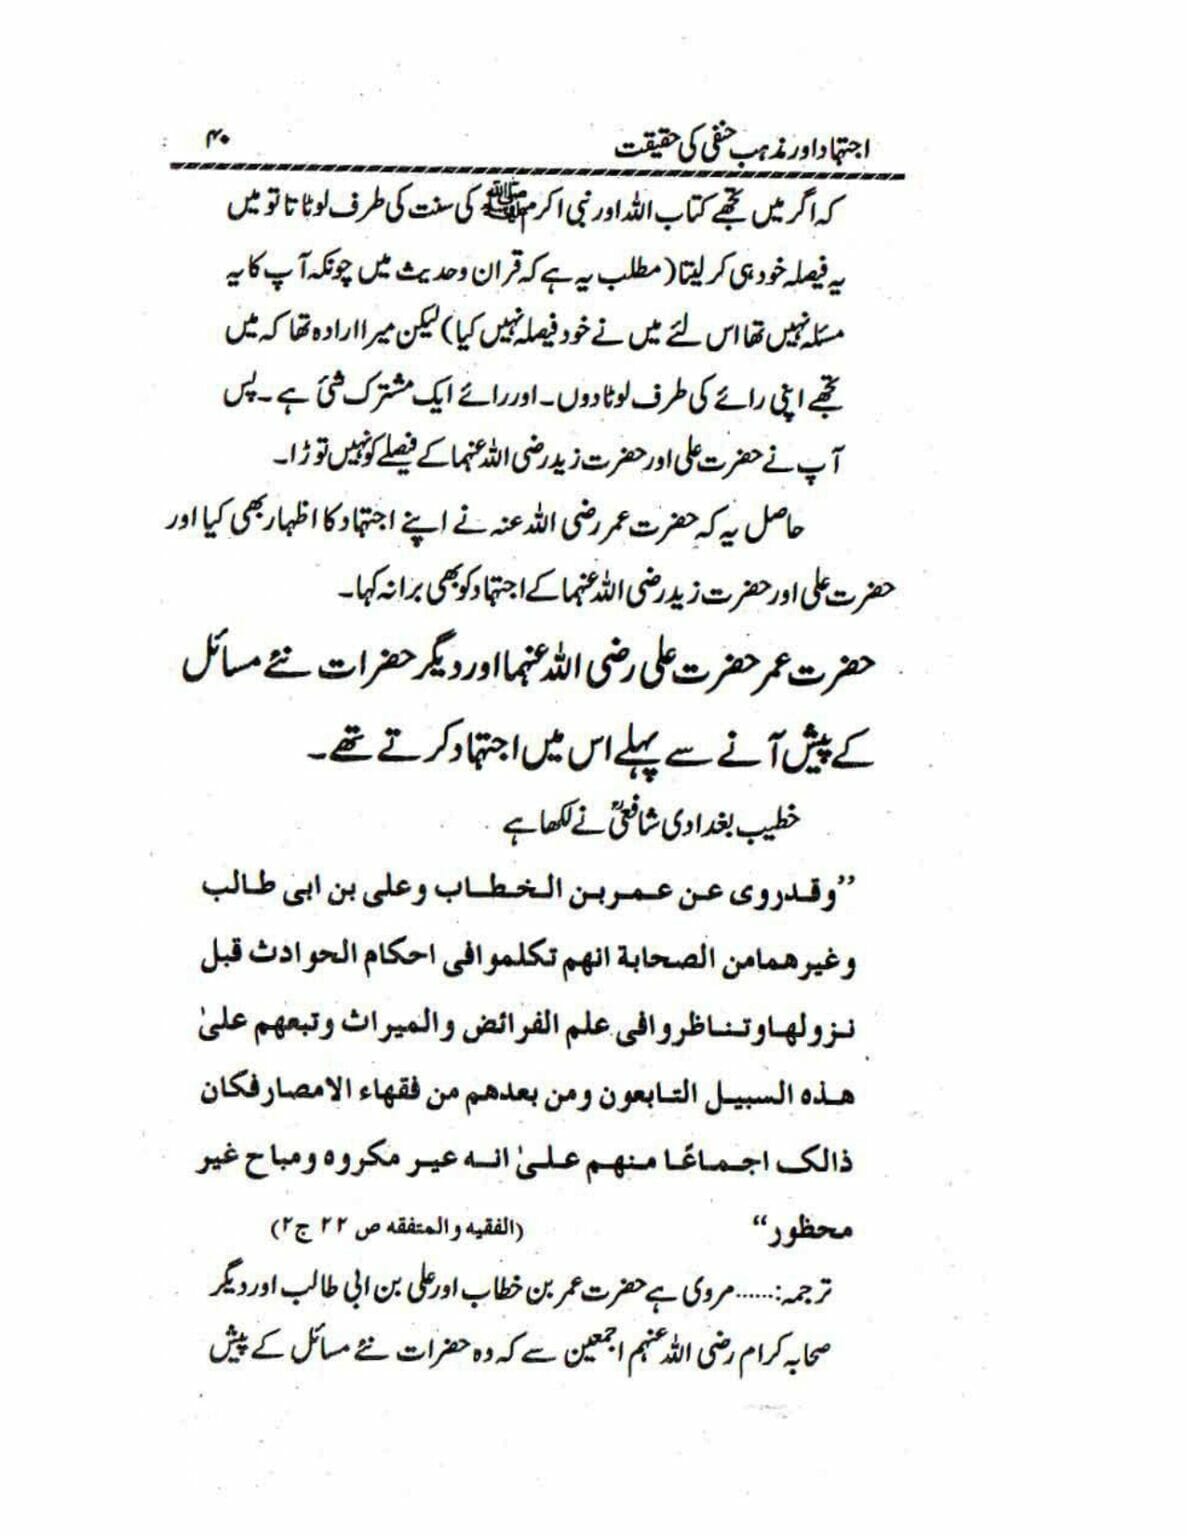 اجتہاد اور مذہب حنفی کی حقیقت ۴۰
کہ اگر میں تجھے کتاب اللہ اور نبی اکرم ﷺ کی سنت کی طرف لوٹاتا تو میں
یہ فیصلہ خود ہی کر لیتا (مطلب یہ ہے کہ قران وحدیث میں چونکہ آپ کا یہ
مسئلہ نہیں تھا اس لئے میں نے خود فیصلہ نہیں کیا) لیکن میرا ارادہ تھا کہ میں
تجھے اپنی رائے کی طرف لوٹا دوں۔ اور رائے ایک مشترک شئ ہے۔ پس
آپ نے حضرت علی اور حضرت زید رضی اللہ عنہما کے فیصلے کو نہیں توڑا۔
حاصل یہ کہ حضرت عمر رضی اللہ عنہ نے اپنے اجتہاد کا اظہار بھی کیا اور
حضرت علی اور حضرت زید رضی اللہ عنہما کے اجتہاد کو بھی برا نہ کہا۔
حضرت عمر حضرت علی رضی اللہ عنہما اور دیگر حضرات نئے مسائل
کے پیش آنے سے پہلے اس میں اجتہاد کرتے تھے۔
خطیب بغدادی شافعیؒ نے لکھا ہے
”وقد روی عن عمر بن الخطاب وعلی بن ابی طالب
وغیرهما من الصحابة انهم تکلموا فی احکام الحوادث قبل
نزولها وتناظروا فی علم الفرائض والمیراث وتبعهم علیٰ
هذه السبیل التابعون ومن بعدهم من فقهاء الامصار فکان
ذالک اجماعًا منهم علیٰ انه عیر مکروه ومباح غیر
محظور“ (الفقیه والمتفقه ص ۲۲ ج۲)
ترجمہ:...... مروی ہے حضرت عمر بن خطاب اور علی بن ابی طالب اور دیگر
صحابہ کرام رضی اللہ عنہم اجمعین سے کہ وہ حضرات نئے مسائل کے پیش